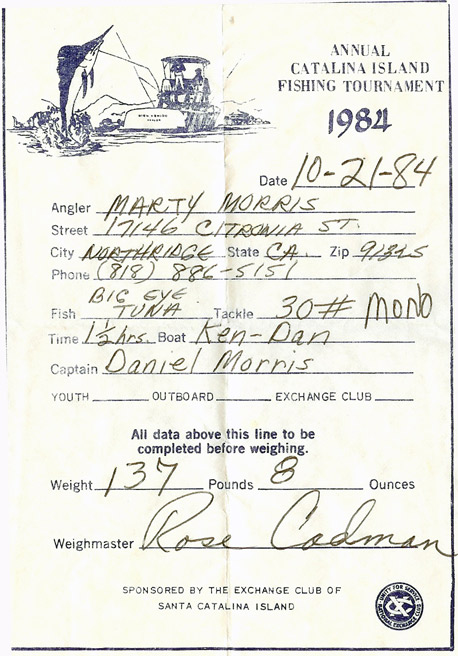 ANNUAL
CATALINA ISLAND
FISHING TOURNAMENT
1984
Date 10-21-84
Angler MARTY MORRIS
Street 17146 CITRONIA ST.
City NORTHRIDGE State CA. Zip 91325
Phone (818) 886-5151
Fish BIG EYE TUNA Tackle 30# MONO
Time 1½ hrs. Boat Ken-Dan
Captain Daniel Morris
YOUTH OUTBOARD EXCHANGE CLUB
All data above this line to be
completed before weighing.
Weight 137 Pounds 8 Ounces
Weighmaster Rose Cadman
SPONSORED BY THE EXCHANGE CLUB OF
SANTA CATALINA ISLAND
UNITY FOR SERVICE
NATIONAL EXCHANGE CLUB